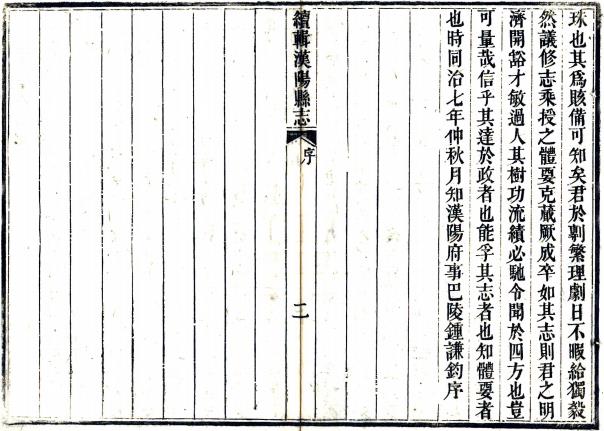 珠也其爲賅備可知矣君於剸繁理劇日不暇給獨毅
然議修志乘授之體要克蕆厥成卒如其志則君之明
濟開豁才敏過人其樹功流績必馳令聞於四方也豈
可量哉信乎其達於政者也能孚其志者也知體要者
也時同治七年仲秋月知漢陽府事巴陵鍾謙鈞序
續輯漢陽縣志
序
二